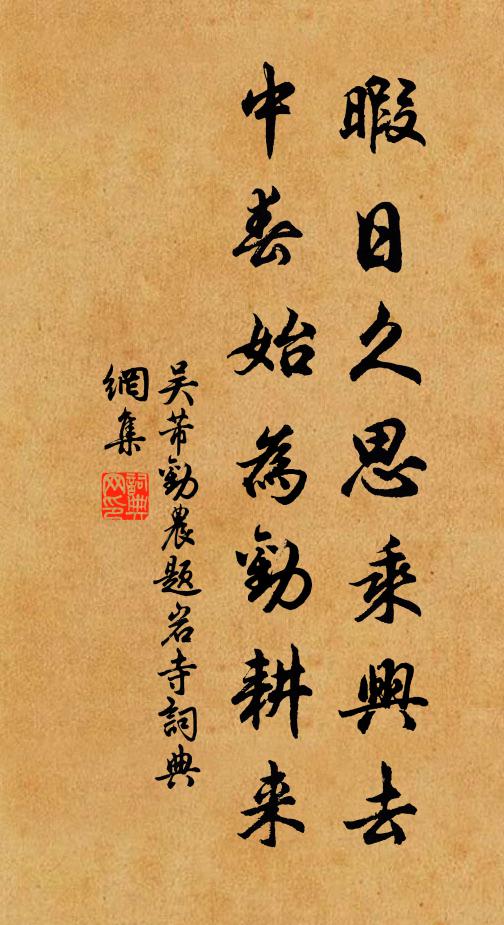 暇日久思乘興去
中春始為勸耕来
吴芾勸農題岩寺詞典
網集
詞典网印